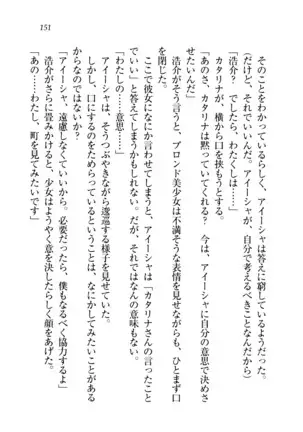 151
そのことをわかっているらしく、アイーシャは答えに窮しているようだった。
(だけど、それでいいんだ。アイーシャが、自分で考えるべきことなんだから)
「浩介? でしたら、わたくしは……」
カタリナが、横から口を挟もうとする。
「あのさ、カタリナは黙っていてくれる? 今は、アイーシャに自分の意思で決めさせたいんだ」
浩介がそう言うと、ブロンド美少女は不満そうな表情を見せながらも、ひとまず口を閉じた。
ここで彼女になにか言わせてしまうと、アイーシャは「カタリナさんの言ったことでいい」と答えてしまうかもしれない。だが、それではなんの意味もない。
「わたしの……意思……」
アイーシャは、そうつぶやきながら逡巡する様子を見せていた。
しかし、口にするのをためらっているということは、なにかしてみたいことがあるからなのではないか?
「アイーシャ、遠慮しなくていいから。必要だったら、僕もなるべく協力するよ」
浩介がさらに畳みかけると、少女はようやく意を決したらしく顔をあげた。
「あの……わたし、町を見てみたいです」